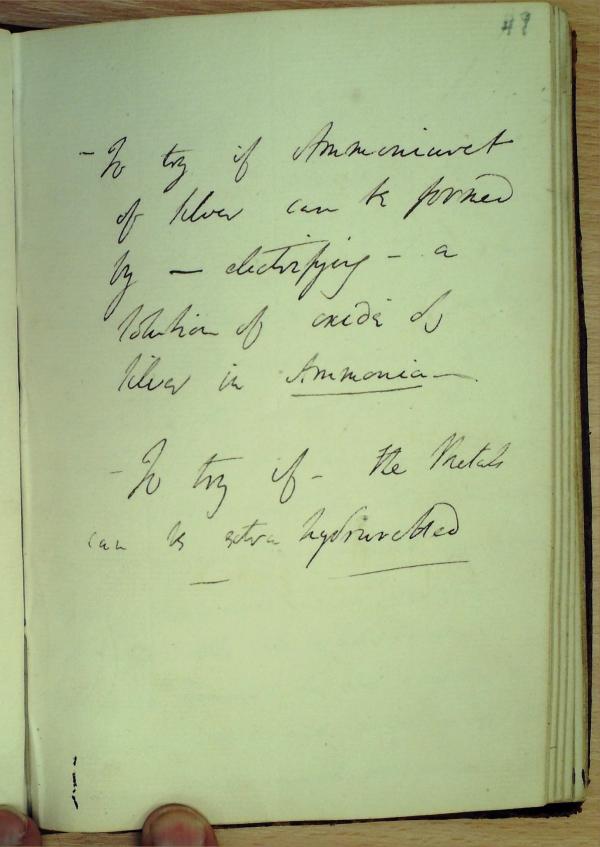 49
- To try if Ammoniuret
of silver can be formed
by - electrifying - a
solution of oxide of
silver in Ammonia -
- To try if - the Metals
can be extra hydruretted